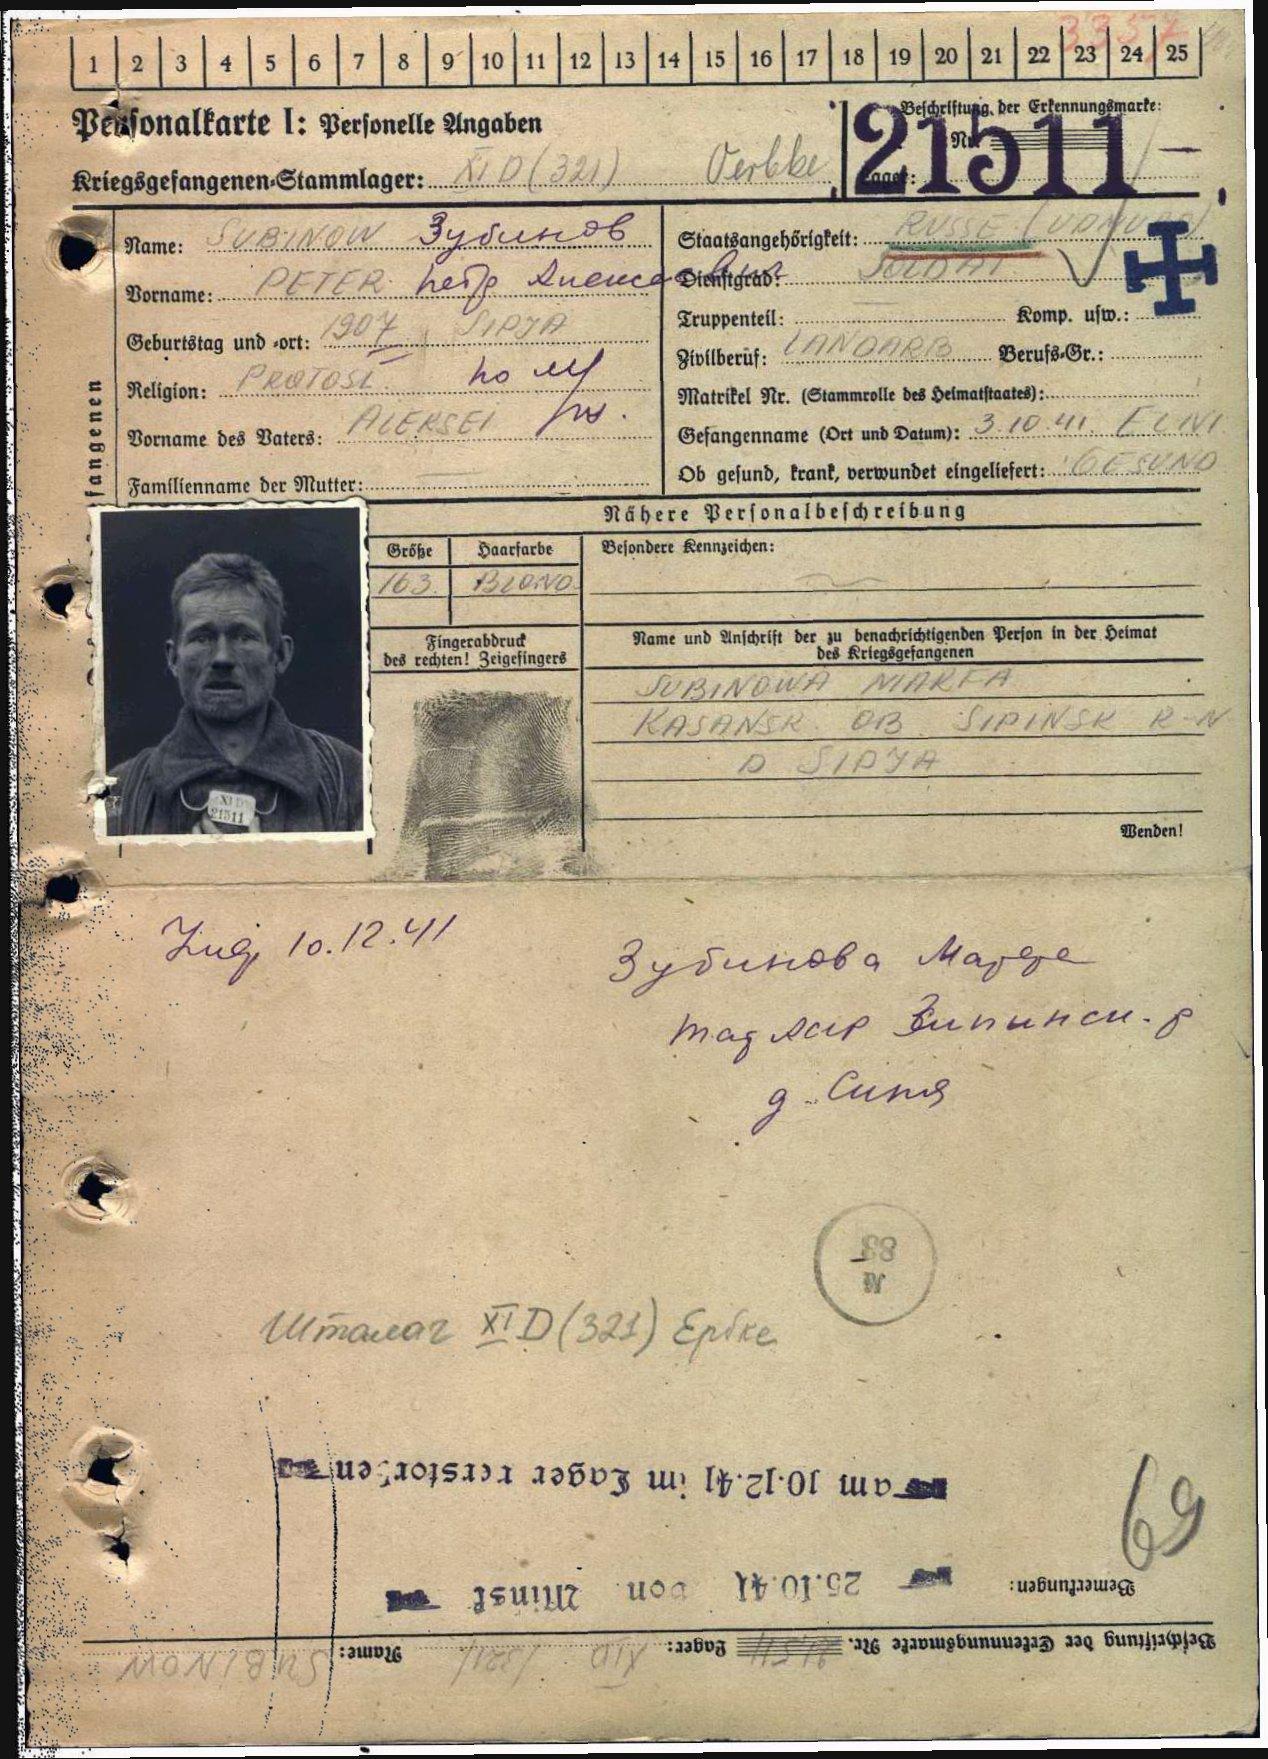 3357
1 2 3 4 5 6 7 8 9 10 11 12 13 14 15 16 17 18 19 20 21 22 23 24 25
Personalkarte I: Personelle Angaben
Beschriftung der Erkennungsmarke:
Nr. 21511
Kriegsgefangenen-Stammlager: XI D (321) Oerbke
Lager:
fangenen
Name: SUBINOW Зубинов
Vorname: PETER Петр
Geburtstag und -ort: 1907 SIPJA
Religion: PROTOSL
Vorname des Vaters: ALEKSEI
Familienname der Mutter:
Staatsangehörigkeit: RUSSE
Dienstgrad: SOLDAT
Truppenteil: Komp. usw.:
Zivilberuf: LANDARB Berufs-Gr.:
Matrikel Nr. (Stammrolle des Heimatstaates):
Gefangenname (Ort und Datum): 3.10.41. ELNI
Ob gesund, krank, verwundet eingeliefert: GESUND
Nähere Personalbeschreibung
Größe Haarfarbe Besondere Kennzeichen:
163. BLOND
Fingerabdruck
des rechten! Zeigefingers
Name und Anschrift der zu benachrichtigenden Person in der Heimat
des Kriegsgefangenen
SUBINOWA MARFA
KASANSK OB SIPINSK R-N
D SIPJA
XI D
21511
Wenden!
10.12.41
Зубинова Марфа
р
д. Сипя
№
83
Шталаг XI D (321) Ербке
am 10.12.41 im Lager verstorben
69
25.10.41 von Minsk
Bemerkungen:
Beschriftung der Erkennungsmarke Nr. 21511 Lager: XI D /321/ Name: SUBINOW